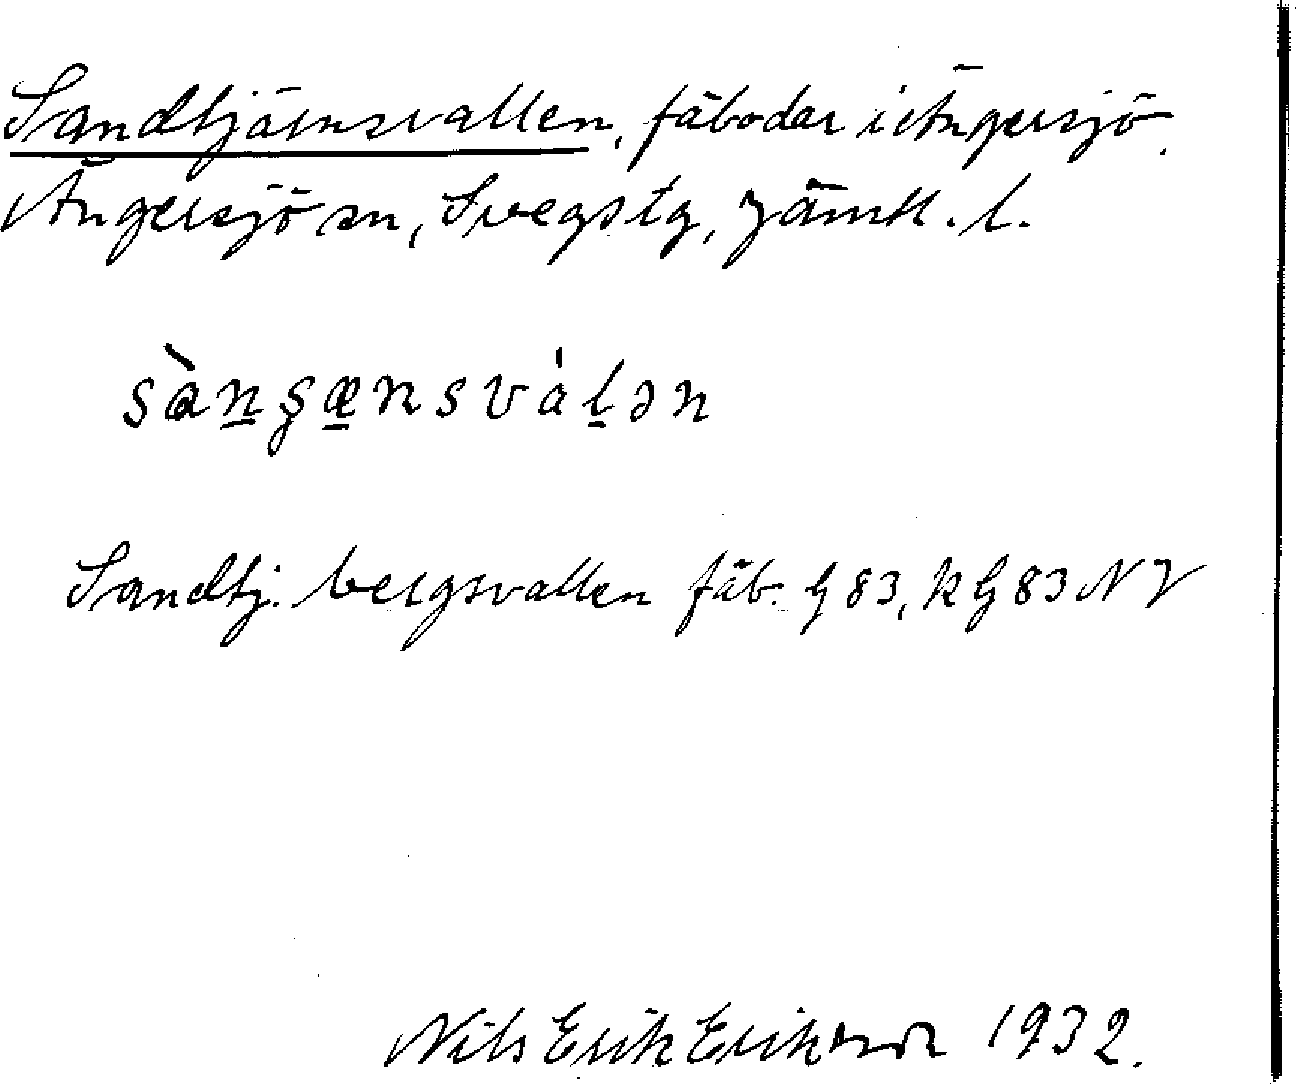 Sandtjärnsvallen, fäbodar i Ängersjö.
Ängersjö sn, Svegs tg, Jämtl. l.
sàn̲ʂæ̲nsvál̲ən
Sandtj. bergsvallen fäb. G 83, k G 83 NV
Nils Erik Eriksson 1932.